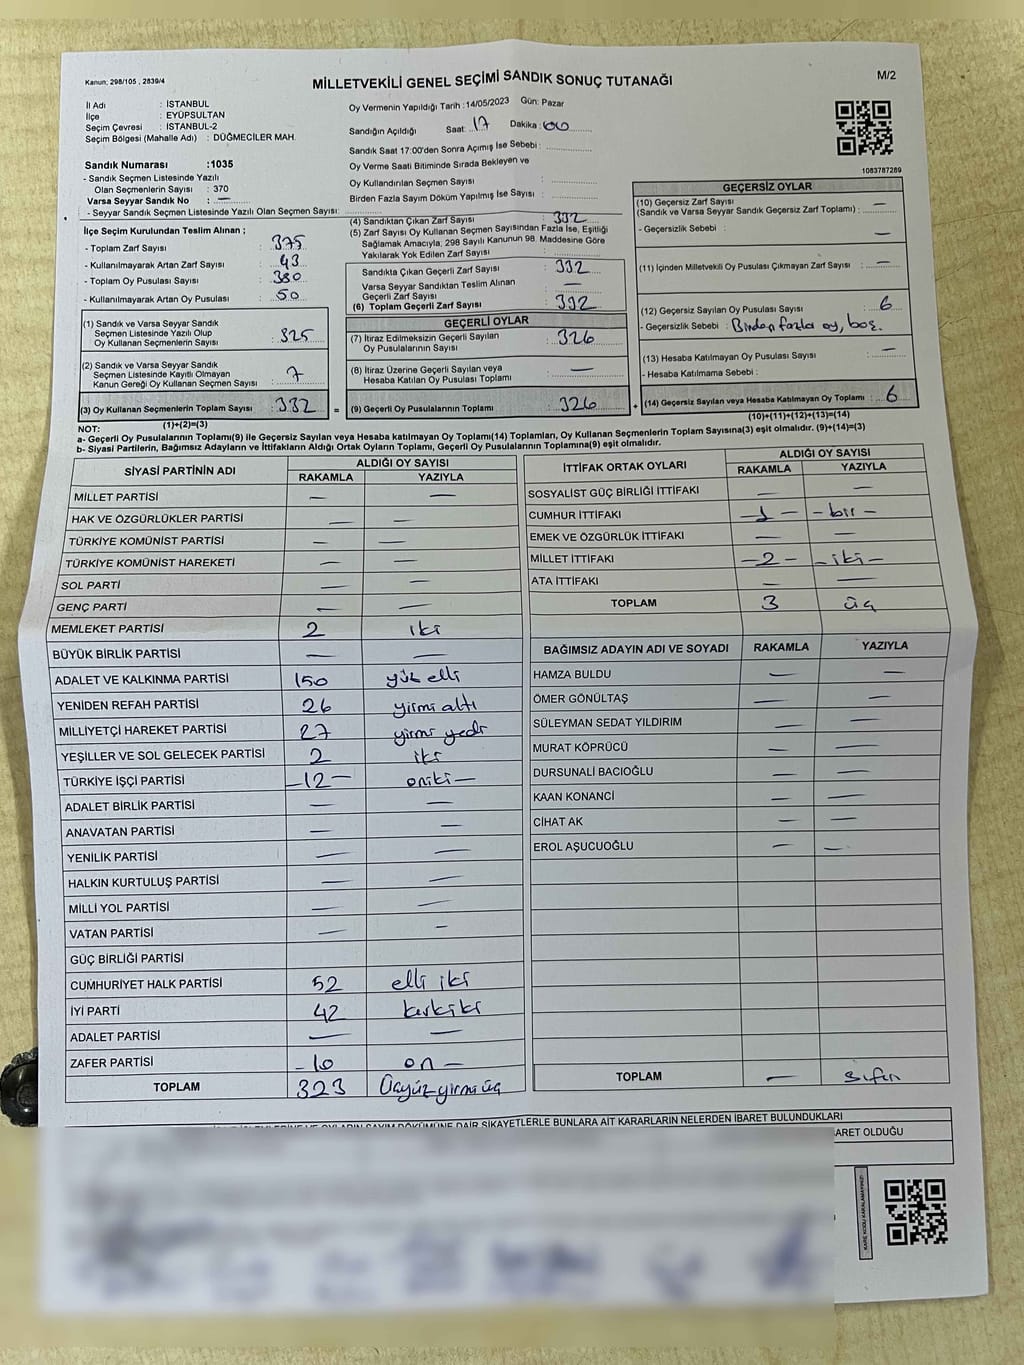 Kanun: 298/105 , 2839/4
MİLLETVEKİLİ GENEL SEÇİMİ SANDIK SONUÇ TUTANAĞI
M/2
İl Adı : İSTANBUL
İlçe : EYÜPSULTAN
Seçim Çevresi : İSTANBUL-2
Seçim Bölgesi (Mahalle Adı) : DÜĞMECİLER MAH.
Sandık Numarası :1035
- Sandık Seçmen Listesinde Yazılı
Olan Seçmenlerin Sayısı : 370
Varsa Seyyar Sandık No : —
- Seyyar Sandık Seçmen Listesinde Yazılı Olan Seçmen Sayısı:
Oy Vermenin Yapıldığı Tarih :14/05/2023 Gün: Pazar
Sandığın Açıldığı Saat: 17 Dakika: 00
Sandık Saat 17:00'den Sonra Açımış İse Sebebi :
Oy Verme Saati Bitiminde Sırada Bekleyen ve
Oy Kullandırılan Seçmen Sayısı :
Birden Fazla Sayım Döküm Yapılmış İse Sayısı :
1083787289
İlçe Seçim Kurulundan Teslim Alınan ;
- Toplam Zarf Sayısı : 375
- Kullanılmayarak Artan Zarf Sayısı : 43
- Toplam Oy Pusulası : 380
- Kullanılmayarak Artan Oy Pusulası : 50
(1) Sandık ve Varsa Seyyar Sandık
Seçmen Listesinde Yazılı Olup
Oy Kullanan Seçmenlerin Sayısı : 325
(2) Sandık ve Varsa Seyyar Sandık
Seçmen Listesinde Kayıtlı Olmayan
Kanun Gereği Oy Kullanan Seçmen Sayısı : 7
(3) Oy Kullanan Seçmenlerin Toplam Sayısı : 332 =
(1)+(2)=(3)
(4) Sandıktan Çıkan Zarf Sayısı : 332
(5) Zarf Sayısı Oy Kullanan Seçmen Sayısından Fazla İse, Eşitliği
Sağlamak Amacıyla; 298 Sayılı Kanunun 98. Maddesine Göre
Yakılarak Yok Edilen Zarf Sayısı :
Sandıkta Çıkan Geçerli Zarf Sayısı : 332
Varsa Seyyar Sandıktan Teslim Alınan
Geçerli Zarf Sayısı : —
(6) Toplam Geçerli Zarf Sayısı : 332
GEÇERLİ OYLAR
(7) İtiraz Edilmeksizin Geçerli Sayılan
Oy Pusulalarının Sayısı : 326
(8) İtiraz Üzerine Geçerli Sayılan veya
Hesaba Katılan Oy Pusulası Toplamı : —
(9) Geçerli Oy Pusulalarının Toplamı : 326 +
GEÇERSİZ OYLAR
(10) Geçersiz Zarf Sayısı
(Sandık ve Varsa Seyyar Sandık Geçersiz Zarf Toplamı) : —
- Geçersizlik Sebebi : —
(11) İçinden Milletvekili Oy Pusulası Çıkmayan Zarf Sayısı : —
(12) Geçersiz Sayılan Oy Pusulası Sayısı : 6
- Geçersizlik Sebebi : Birden fazla oy, boş.
(13) Hesaba Katılmayan Oy Pusulası Sayısı : —
- Hesaba Katılmama Sebebi :
(14) Geçersiz Sayılan veya Hesaba Katılmayan Oy Toplamı : 6
(10)+(11)+(12)+(13)=(14)
NOT:
a- Geçerli Oy Pusulalarının Toplamı(9) ile Geçersiz Sayılan veya Hesaba katılmayan Oy Toplamı(14) Toplamları, Oy Kullanan Seçmenlerin Toplam Sayısına(3) eşit olmalıdır. (9)+(14)=(3)
b- Siyasi Partilerin, Bağımsız Adayların ve İttifakların Aldığı Ortak Oyların Toplamı, Geçerli Oy Pusulalarının Toplamına(9) eşit olmalıdır.
SİYASİ PARTİNİN ADI ALDIĞI OY SAYISI
RAKAMLA YAZIYLA
MİLLET PARTİSİ — —
HAK VE ÖZGÜRLÜKLER PARTİSİ — —
TÜRKİYE KOMÜNİST PARTİSİ — —
TÜRKİYE KOMÜNİST HAREKETİ — —
SOL PARTİ — —
GENÇ PARTİ — —
MEMLEKET PARTİSİ 2 iki
BÜYÜK BİRLİK PARTİSİ — —
ADALET VE KALKINMA PARTİSİ 150 yüz elli
YENİDEN REFAH PARTİSİ 26 yirmi altı
MİLLİYETÇİ HAREKET PARTİSİ 27 yirmi yedi
YEŞİLLER VE SOL GELECEK PARTİSİ 2 iki
TÜRKİYE İŞÇİ PARTİSİ —12— oniki—
ADALET BİRLİK PARTİSİ — —
ANAVATAN PARTİSİ — —
YENİLİK PARTİSİ — —
HALKIN KURTULUŞ PARTİSİ — —
MİLLİ YOL PARTİSİ — —
VATAN PARTİSİ — —
GÜÇ BİRLİĞİ PARTİSİ
CUMHURİYET HALK PARTİSİ 52 elli iki
İYİ PARTİ 42 kırkiki
ADALET PARTİSİ — —
ZAFER PARTİSİ —10 on—
TOPLAM 323 Üçyüzyirmiüç
İTTİFAK ORTAK OYLARI ALDIĞI OY SAYISI
RAKAMLA YAZIYLA
SOSYALİST GÜÇ BİRLİĞİ İTTİFAKI — —
CUMHUR İTTİFAKI —1— —bir—
EMEK VE ÖZGÜRLÜK İTTİFAKI — —
MİLLET İTTİFAKI —2— —iki—
ATA İTTİFAKI — —
TOPLAM 3 üç
BAĞIMSIZ ADAYIN ADI VE SOYADI RAKAMLA YAZIYLA
HAMZA BULDU — —
ÖMER GÖNÜLTAŞ — —
SÜLEYMAN SEDAT YILDIRIM — —
MURAT KÖPRÜCÜ — —
DURSUNALİ BACIOĞLU — —
KAAN KONANCİ — —
CİHAT AK — —
EROL AŞUCUOĞLU — —
TOPLAM — sıfır
DÖKÜMÜNE DAİR ŞİKAYETLERLE BUNLARA AİT KARARLARIN NELERDEN İBARET BULUNDUKLARI
ARET OLDUĞU
KARE KODU KARALAMAYINIZ!